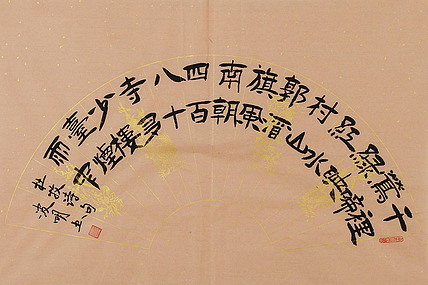 千裡
鶯啼
綠映
紅水
村山
郭酒
旗風
南朝
四百
八十
寺多
少樓
臺煙
雨中
杜牧詩句